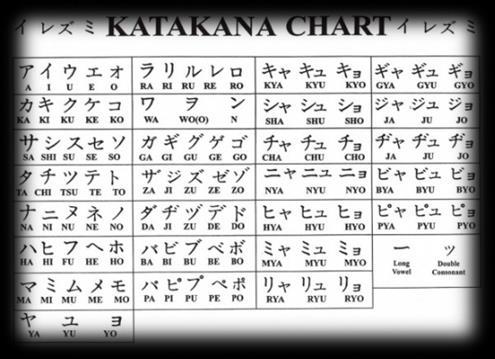 イ レ ズ ミ KATAKANA CHART イ レ ズ ミ
ア イ ウ エ オ
A I U E O
カ キ ク ケ コ
KA KI KU KE KO
サ シ ス セ ソ
SA SHI SU SE SO
タ チ ツ テ ト
TA CHI TSU TE TO
ナ ニ ヌ ネ ノ
NA NI NU NE NO
ハ ヒ フ ヘ ホ
HA HI FU HE HO
マ ミ ム メ モ
MA MI MU ME MO
ヤ ユ ヨ
YA YU YO
ラ リ ル レ ロ
RA RI RU RE RO
ワ ヲ ン
WA WO(O) N
ガ ギ グ ゲ ゴ
GA GI GU GE GO
ザ ジ ズ ゼ ゾ
ZA JI ZU ZE ZO
ダ ヂ ヅ デ ド
DA JI ZU DE DO
バ ビ ブ ベ ボ
BA BI BU BE BO
パ ピ プ ペ ポ
PA PI PU PE PO
キャ キュ キョ
KYA KYU KYO
シャ シュ ショ
SHA SHU SHO
チャ チュ チョ
CHA CHU CHO
ニャ ニュ ニョ
NYA NYU NYO
ヒャ ヒュ ヒョ
HYA HYU HYO
ミャ ミュ ミョ
MYA MYU MYO
リャ リュ リョ
RYA RYU RYO
ギャ ギュ ギョ
GYA GYU GYO
ジャ ジュ ジョ
JA JU JO
ヂャ ヂュ ヂョ
JA JU JO
ビャ ビュ ビョ
BYA BYU BYO
ピャ ピュ ピョ
PYA PYU PYO
ー ッ
Long Double
Vowel Consonant